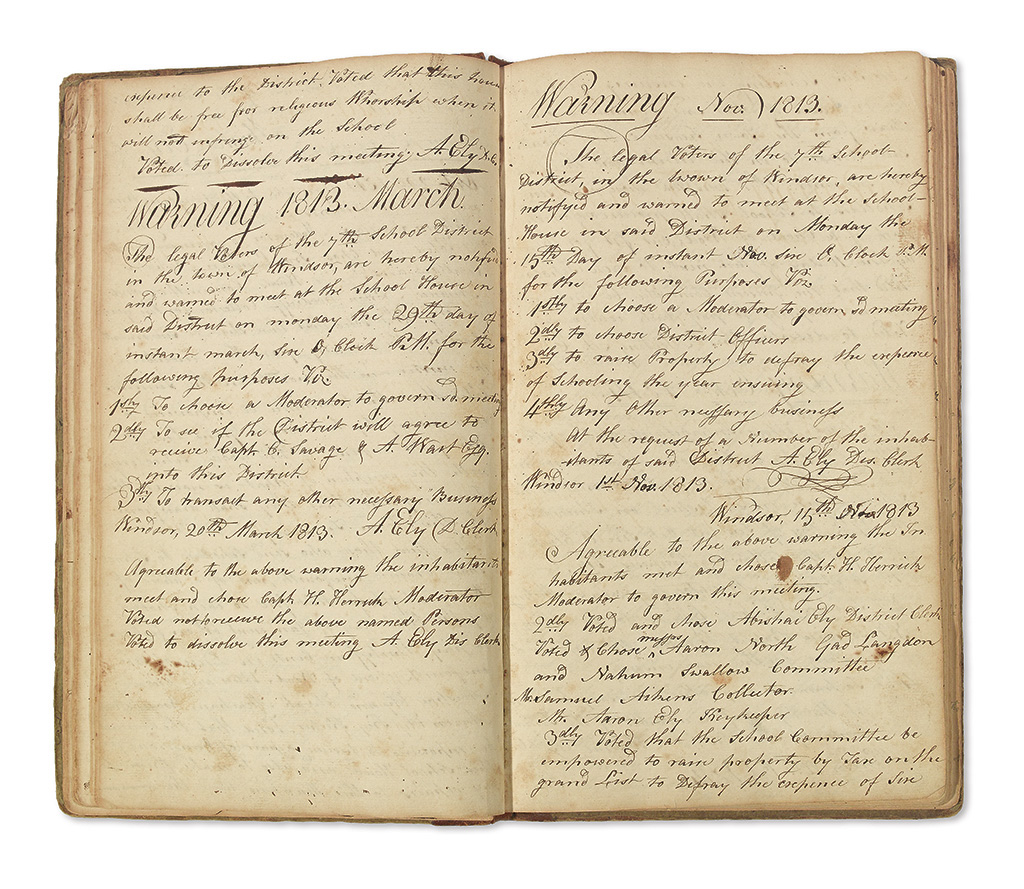 expence to the District. Voted that this house
shall be free for religious Whorship when it
will not infringe on the School
Voted to Dissolve this meeting. A. Ely D. C.
Warning 1813. March
The legal Voters of the 7th School District
in the town of Windsor, are hereby notified
and warned to meet at the School House in
said District on monday the 29th day of
instant march, Six O, Clock P.M. for the
following purposes Viz.
1stly To choose a Moderator to govern sd. meeting
2dly To see if the District will agree to
receive Capt. C. Savage & A. Wait Esq.
into this District.
3dly To transact any other necessary Business
Windsor, 20th March 1813. A. Ely D. Clerk
Agreeable to the above warning the inhabitants
meet and chose Capt. H. Herrick Moderator
Voted not receive the above named Persons
Voted to dissolve this meeting A. Ely Dis Clerk
Warning Nov. 1813.
The legal Voters of the 7th School-
District in the town of Windsor, are hereby
notifyed and warned to meet at the School-
House in said District on Monday the
15th Day of instant Nov. Six O, Clock P.M.
for the following Purposes Viz.
1stly to choose a Moderator to govern sd meeting
2dly to choose District Officers
3dly to raise Property to defray the expence
of Schooling the year ensuing
4thly Any other necessary business
At the request of a Number of the inhab-
itants of said District A. Ely Dis. Clerk
Windsor 1st Nov. 1813.
Windsor, 15th Nov 1813
Agreeable to the above warning the In
habitants met and chose Capt. H. Herrick
Moderator to govern this meeting.
2dly Voted and chose Abishai Ely District Clerk
Voted & Chose messrs Aaron North Gad Langdon
and Nahum Swallow Committee
Mr. Samuel Aikens Collector.
Mr. Aaron Ely Keykeeper
3dly Voted that the School Committee be
impowered to raise property by Tax on the
grand List to Defray the expence of Six